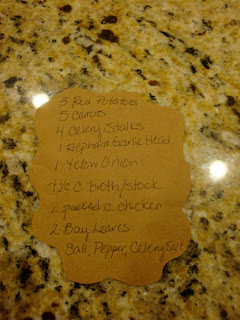 3 Red potatoes
5 Carrots
4 Celery Stalks
1 Elephant Garlic Head
1 Yellow Onion
c broth/stock
packed c. chicken
2 Bay Leaves
Salt, Pepper, Celery Salt